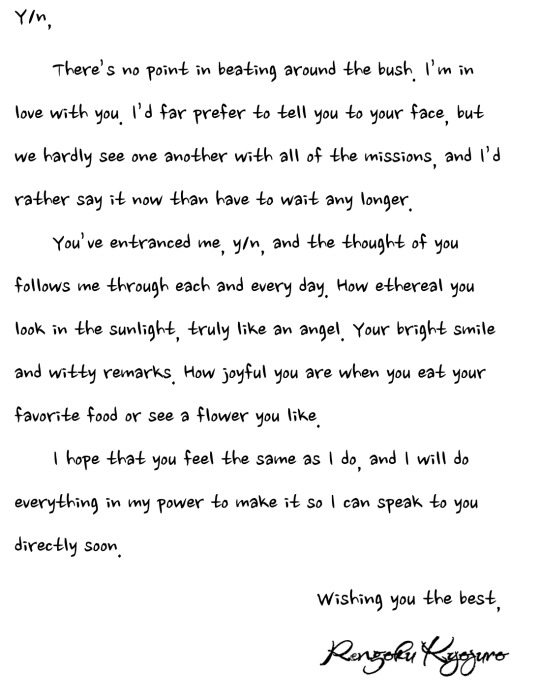 Y/n,
There's no point in beating around the bush. I'm in
love with you. I'd far prefer to tell you to your face, but
we hardly see one another with all of the missions, and I'd
rather say it now than have to wait any longer.
You've entranced me, y/n, and the thought of you
follows me through each and every day. How ethereal you
look in the sunlight, truly like an angel. Your bright smile
and witty remarks. How joyful you are when you eat your
favorite food or see a flower you like.
I hope that you feel the same as I do, and I will do
everything in my power to make it so I can speak to you
directly soon.
Wishing you the best,
Rengoku Kyojuro